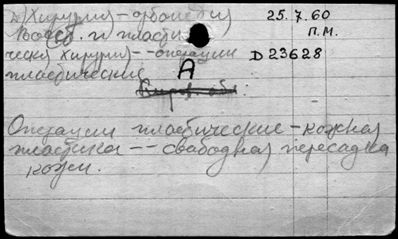 Хирургия - ортопедия 25.7.60
Восст. и пласти П.М.
ческая хирургия -- операции D 23628
пластические
А
Операции пластические - кожная
пластика -- свободная пересадка
кожи.